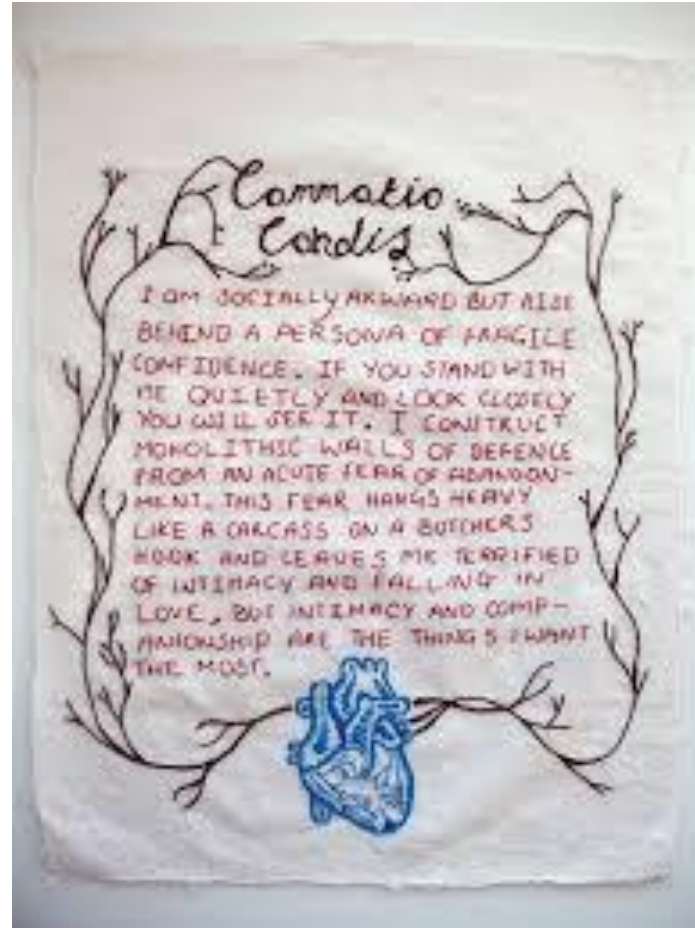 Commotio
Cordis
I AM SOCIALLY AKWARD BUT HIDE
BEHIND A PERSONA OF FRAGILE
CONFIDENCE. IF YOU STAND WITH
ME QUIETLY AND LOOK CLOSELY
YOU WILL SEE IT. I CONSTRUCT
MONOLITHIC WALLS OF DEFENCE
FROM AN ACUTE FEAR OF ABANDON-
MENT. THIS FEAR HANGS HEAVY
LIKE A CARCASS ON A BUTCHERS
HOOK AND LEAVES ME TERRIFIED
OF INTIMACY AND FALLING IN
LOVE, BUT INTIMACY AND COMP-
ANIONSHIP ARE THE THINGS I WANT
THE MOST.